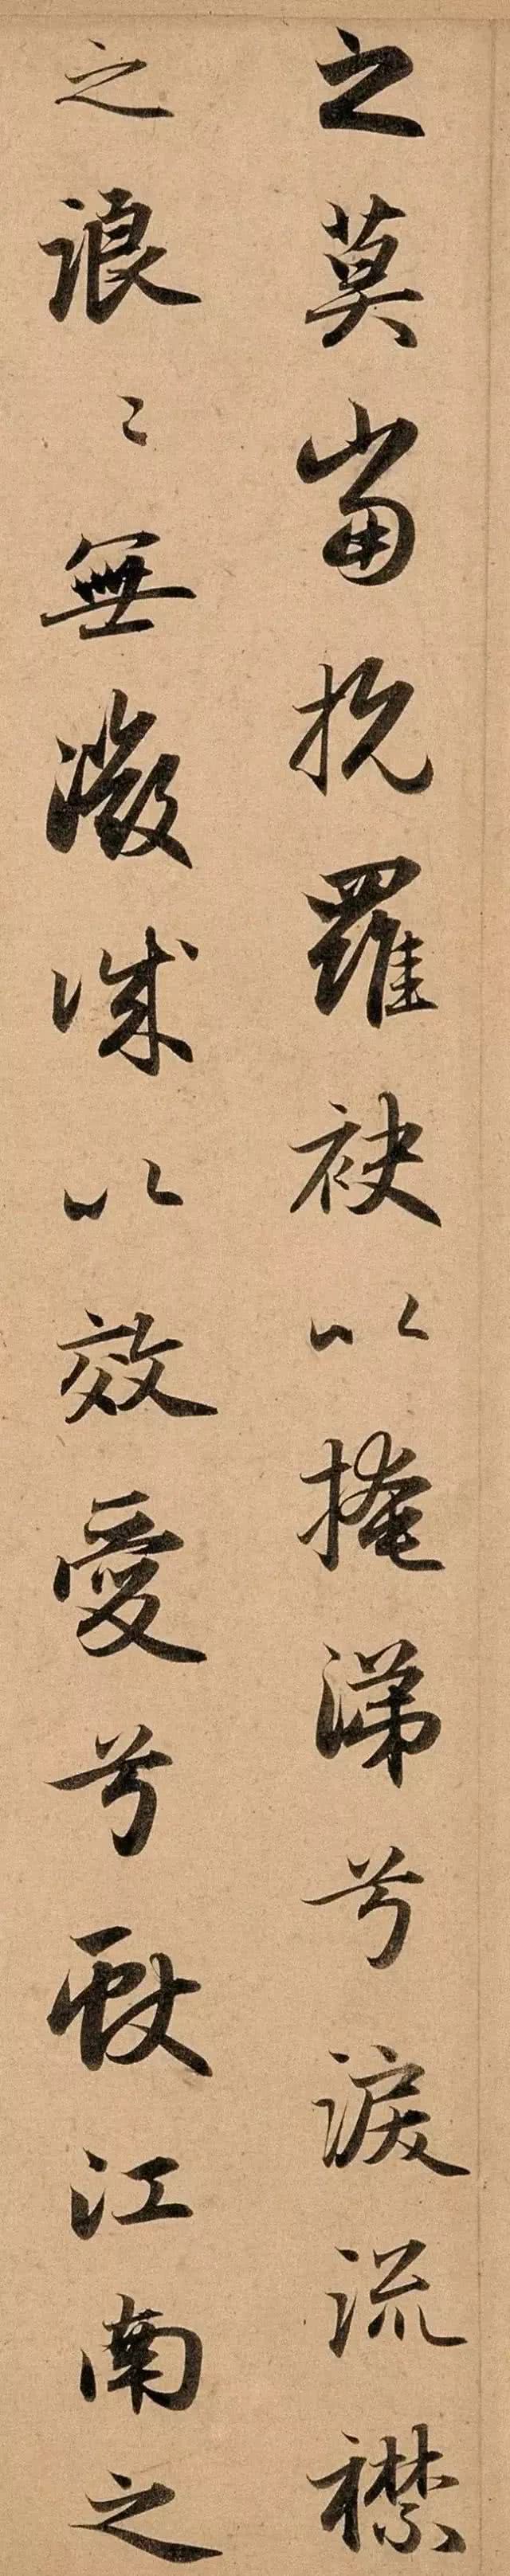 之莫當抗羅袂以掩涕兮淚流襟
之浪〻無微誠以效愛兮獻江南之